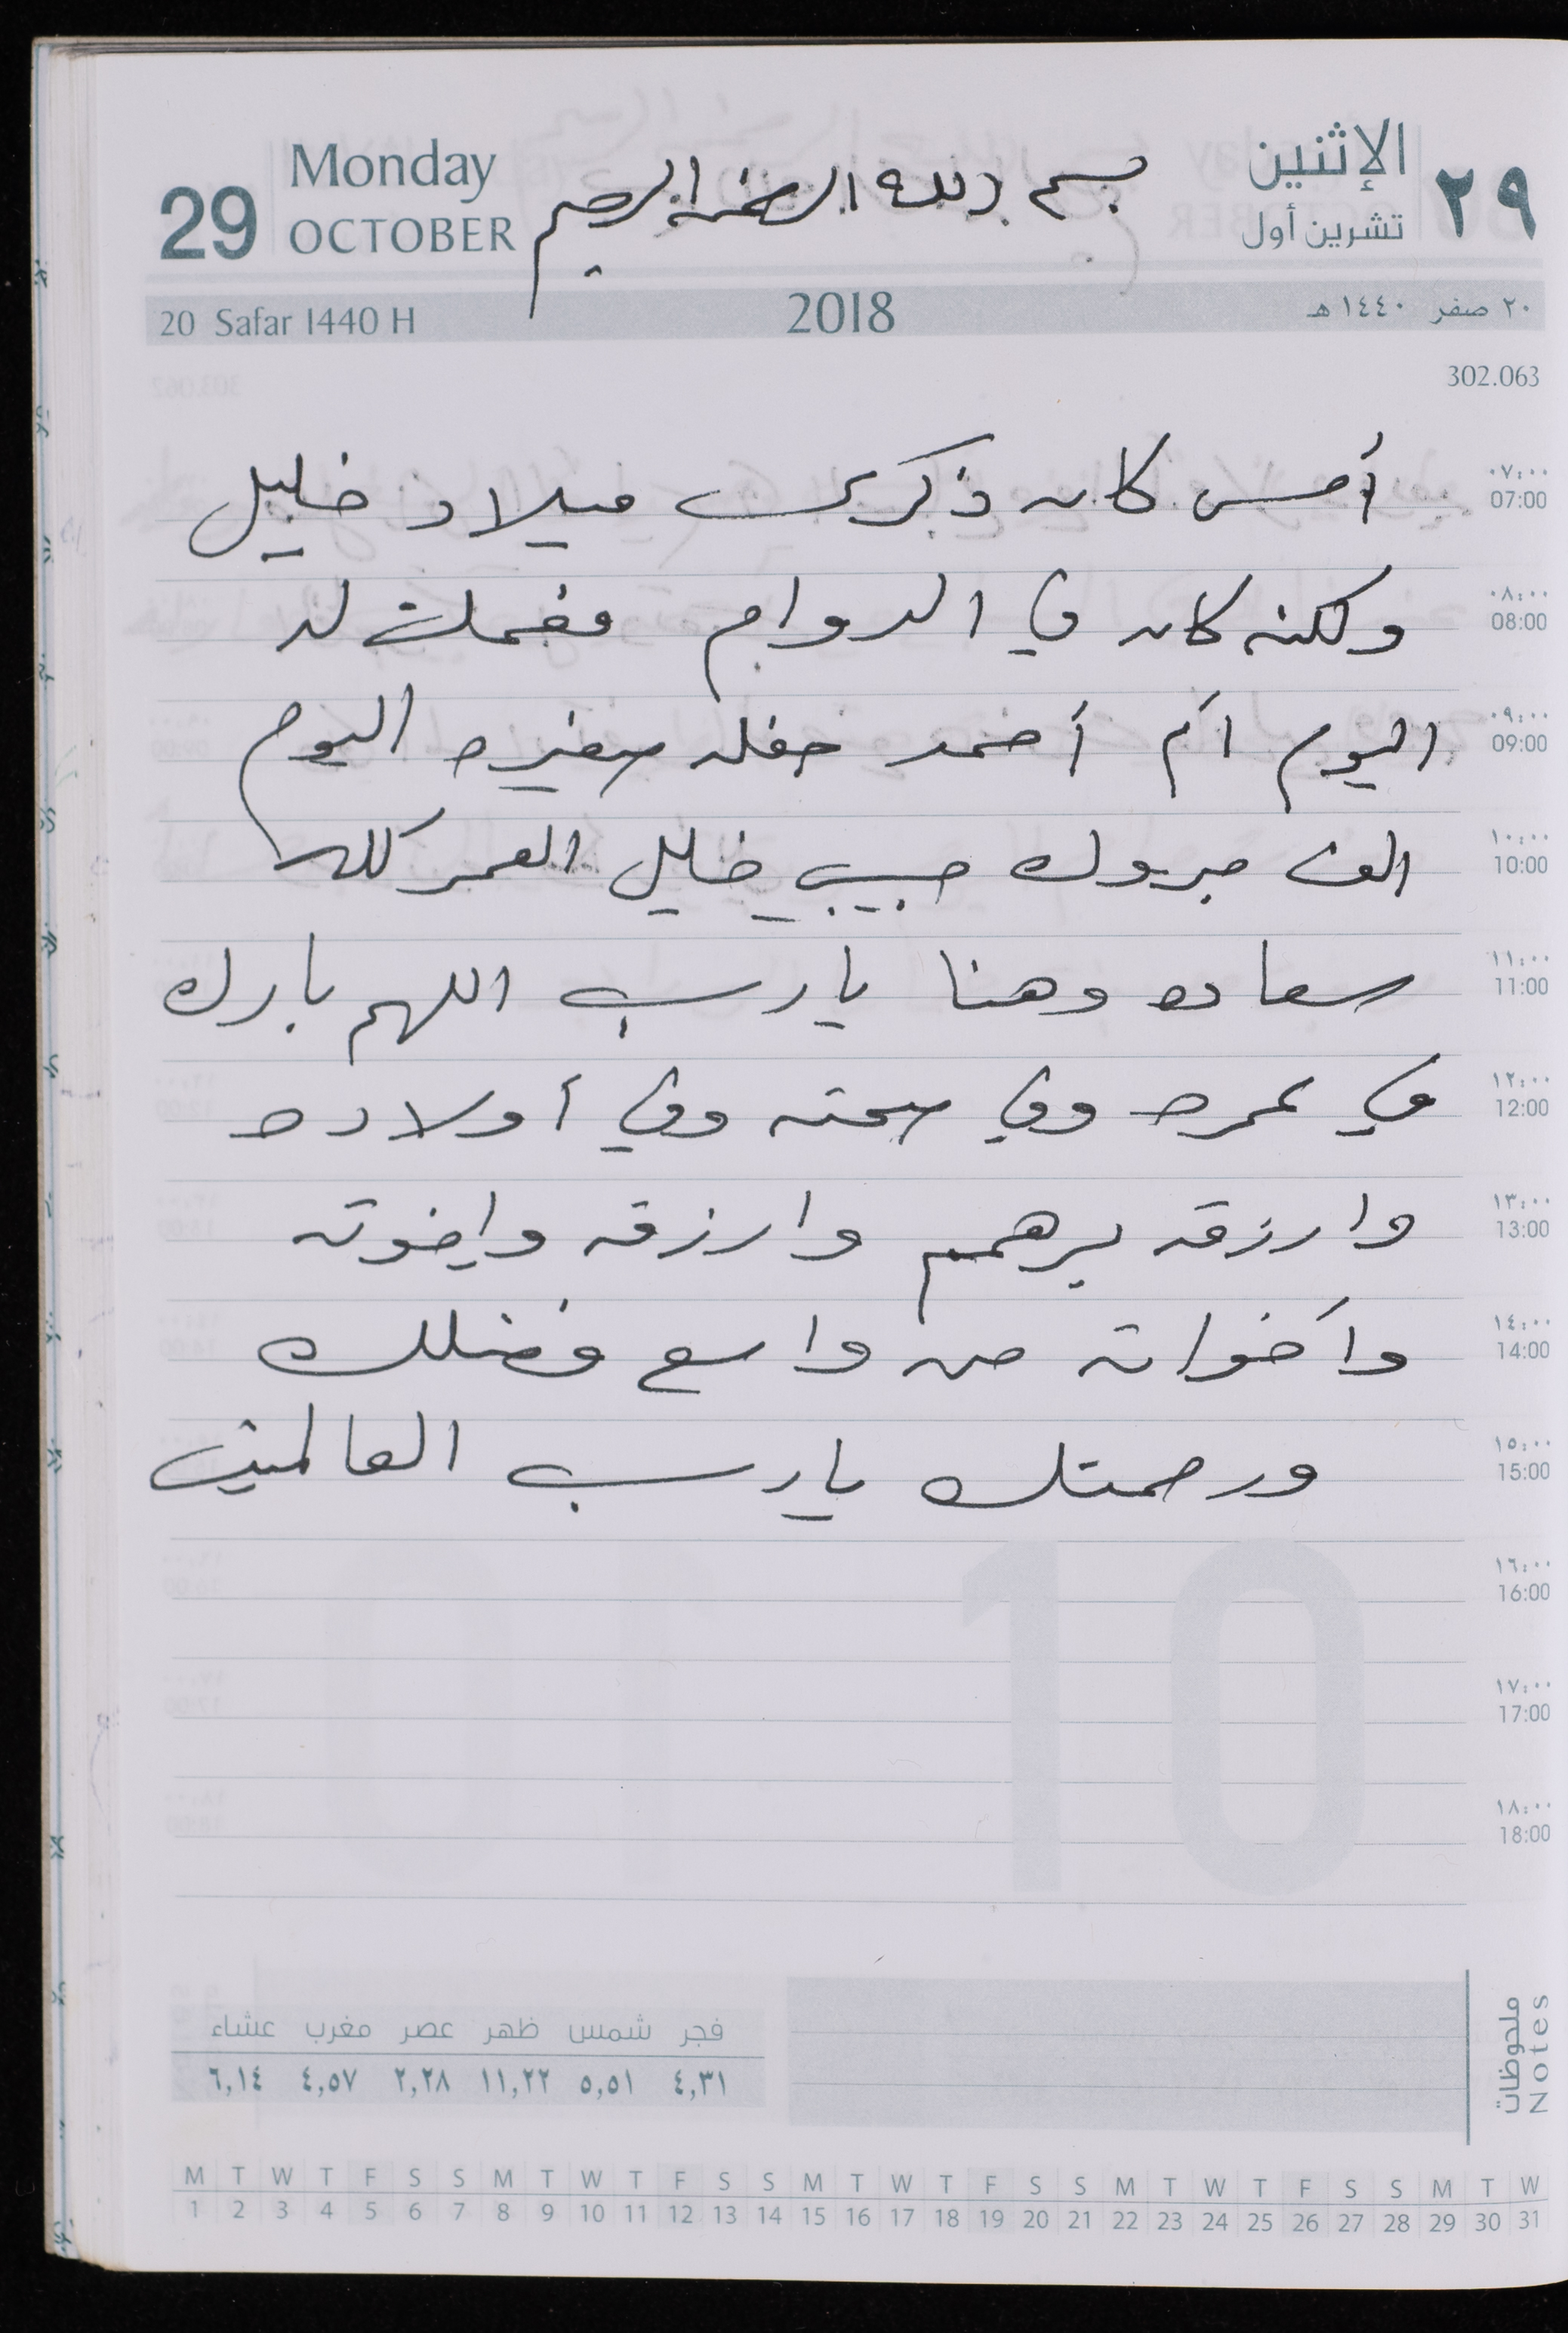 29
Monday
OCTOBER
بسم الله الرحمن الرحيم
الإثنين
تشرين أول
٢٩
20 Safar 1440 H
2018
٢٠ صفر ١٤٤٠ هـ
302.063
٠٧:٠٠
07:00
أمس كان ذكرى ميلاد خليل
٠٨:٠٠
08:00
ولكنه كان في الدوام فعملت له
٠٩:٠٠
09:00
اليوم ام أحمد حفله صغيره اليوم
١٠:٠٠
10:00
الف مبروك حبيبي خليل العمر كله
١١:٠٠
11:00
سعاده وهنا يارب اللهم بارك
١٢:٠٠
12:00
في عمره وفي صحته وفي أولاده
١٣:٠٠
13:00
وارزقه برهم وارزقه واخوته
١٤:٠٠
14:00
وأخواته من واسع فضلك
١٥:٠٠
15:00
ورحمتك يارب العالمين
١٦:٠٠
16:00
١٧:٠٠
17:00
١٨:٠٠
18:00
10
ملحوظات
Notes
فجر شمس ظهر عصر مغرب عشاء
٤,٣١ ٥,٥١ ١١,٢٢ ٢,٢٨ ٤,٥٧ ٦,١٤
M T W T F S S M T W T F S S M T W T F S S M T W T F S S M T W
1 2 3 4 5 6 7 8 9 10 11 12 13 14 15 16 17 18 19 20 21 22 23 24 25 26 27 28 29 30 31